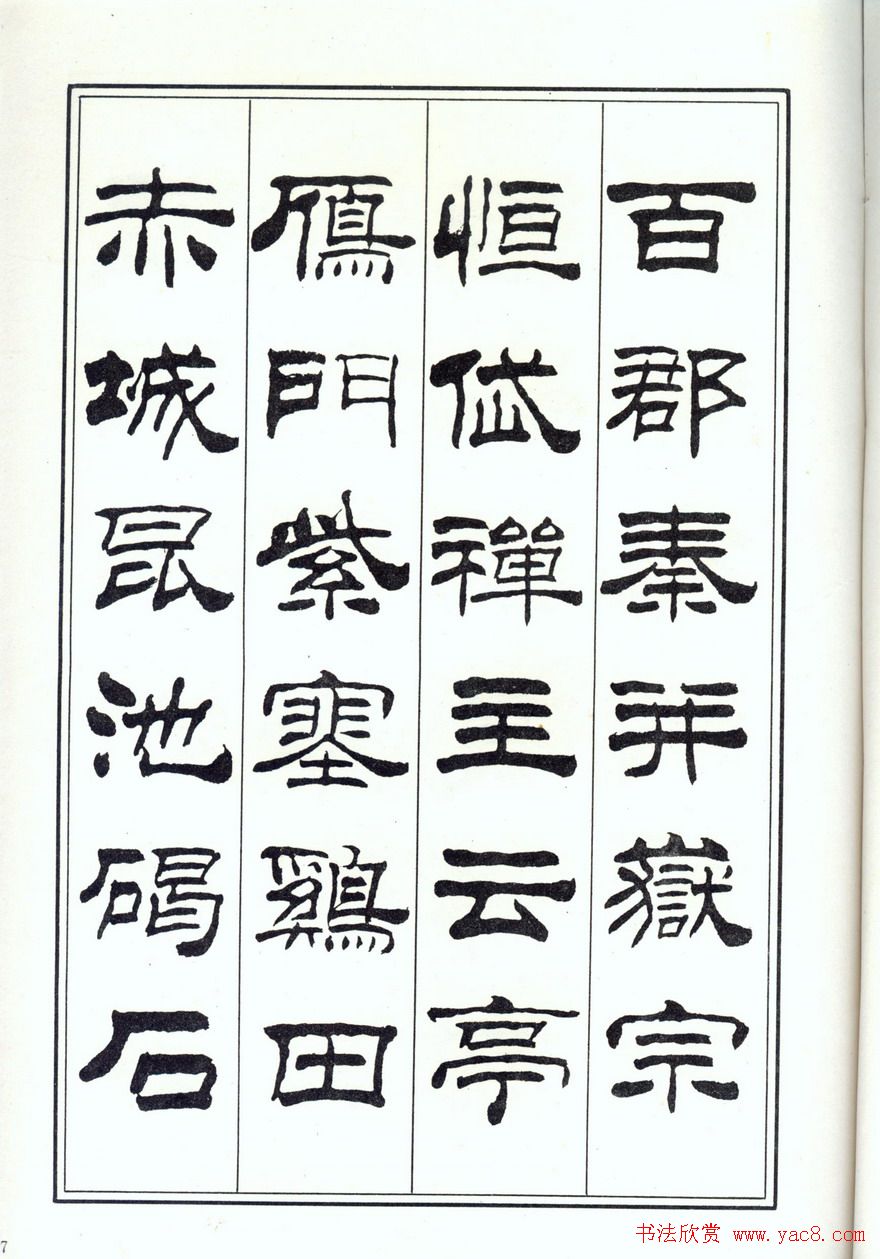 百郡秦并嶽宗
恒岱禪主云亭
鴈門紫塞鷄田
赤城昆池碣石
7
书法欣赏 www.yac8.com